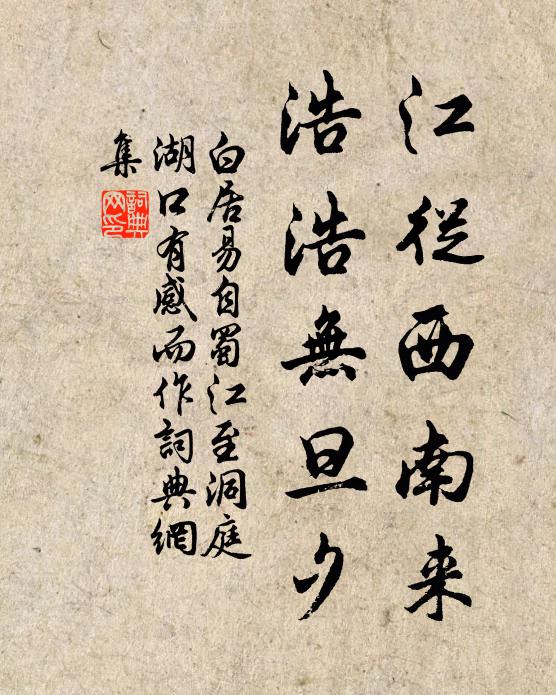 江從西南来
浩浩無旦夕
白居易自蜀江至洞庭
湖口有感而作詞典網
集
詞典
网印